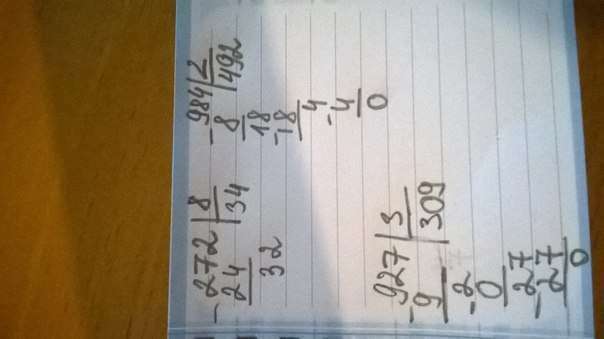 -272 | 8
24 | 34
32
-984 | 2
8 | 492
18
-18
4
-4
0
-927 | 3
9 | 309
-2
0
-27
27
0